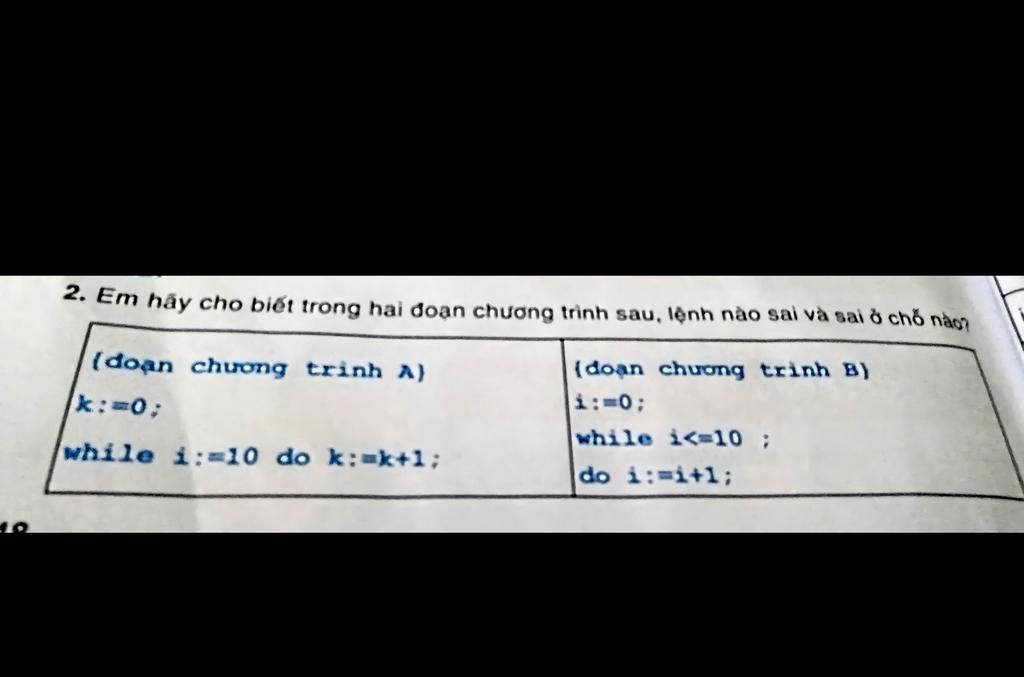 2. Em hãy cho biết trong hai đoạn chương trình sau, lệnh nào sai và sai ở chỗ nào?
{đoạn chương trình A}
k:=0;
while i:=10 do k:=k+1;
{đoạn chương trình B}
i:=0;
while i<=10 ;
do i:=i+1;